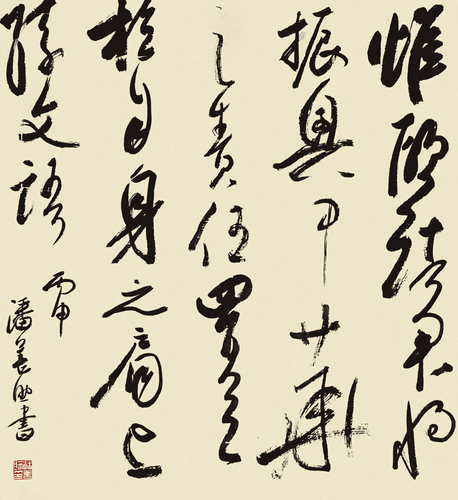 惟願諸君將
振興中華
之責任置之
於自身之肩上
孫文語
丙申
潘善助書